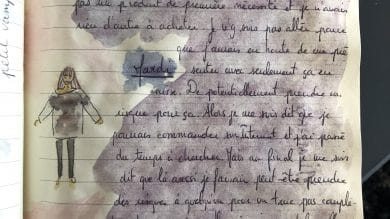 pas un produit de première nécessité et je n'avais
rien d'autre à acheter. Je n'y suis pas allée parce
que j'aurais eu honte de me pré
Mardi senter avec seulement ça en
caisse. De potentiellement prendre un
risque pour ça. Alors je me suis dit que je
pouvais commander sur internet et j'ai passé
du temps à chercher. Mais au final je me suis
dit que là aussi je faisais peut-être prendre
des risques à quelqu'un pour un truc pas complè-
petit vamp